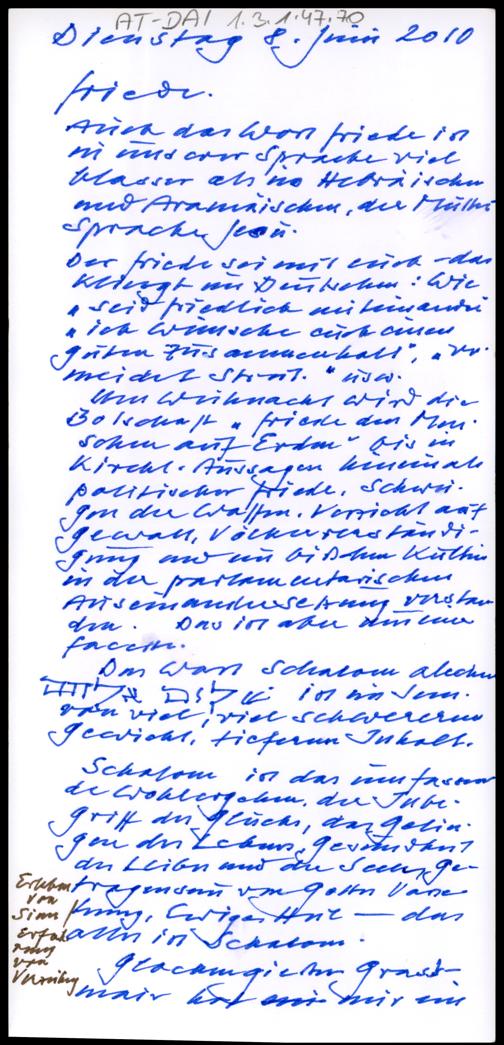 AT-DAI 1.3.1.47.70
Dienstag 8. Juni 2010
Friede.
Auch das Wort Friede ist
in unserer Sprache viel
blasser als im Hebräischen
und Aramäischen, der Mutter
Sprache Jesu.
Der Friede sei mit euch - das
klingt im Deutschen: wie
"seid friedlich miteinander
"ich wünsche euch einen
guten Zusammenhalt", "ver
meidet Streit." usw.
Um Weihnacht wird die
Botschaft "Friede den Men-
schen auf Erden" bis in
kirchl. Aussagen hinein als
politischer Friede, Schwei-
gen der Waffen, Verzicht auf
Gewalt, Völkerverständi-
gung und ein bißchen Kultur
in der parlamentarischen
Auseinandersetzung verstan
den. Das ist aber nur eine
Facette.
Das Wort Schalom
ist im
viel, viel schwererem
Gewicht, tieferem Inhalt.
Schalom ist das umfassen
de Wohlergehen, der Inbe-
griff des Glücks, das Gelin-
gen des Lebens, Gesundheit
des Leibes und der Seele, Ge-
tragensein von Gottes Vorse
hung, Ewiges Heil — das
alles ist Schalom.
Erleben
von
Sinn
Erfah
rung
von
Glockengießer Grass-
mair hat mir ein